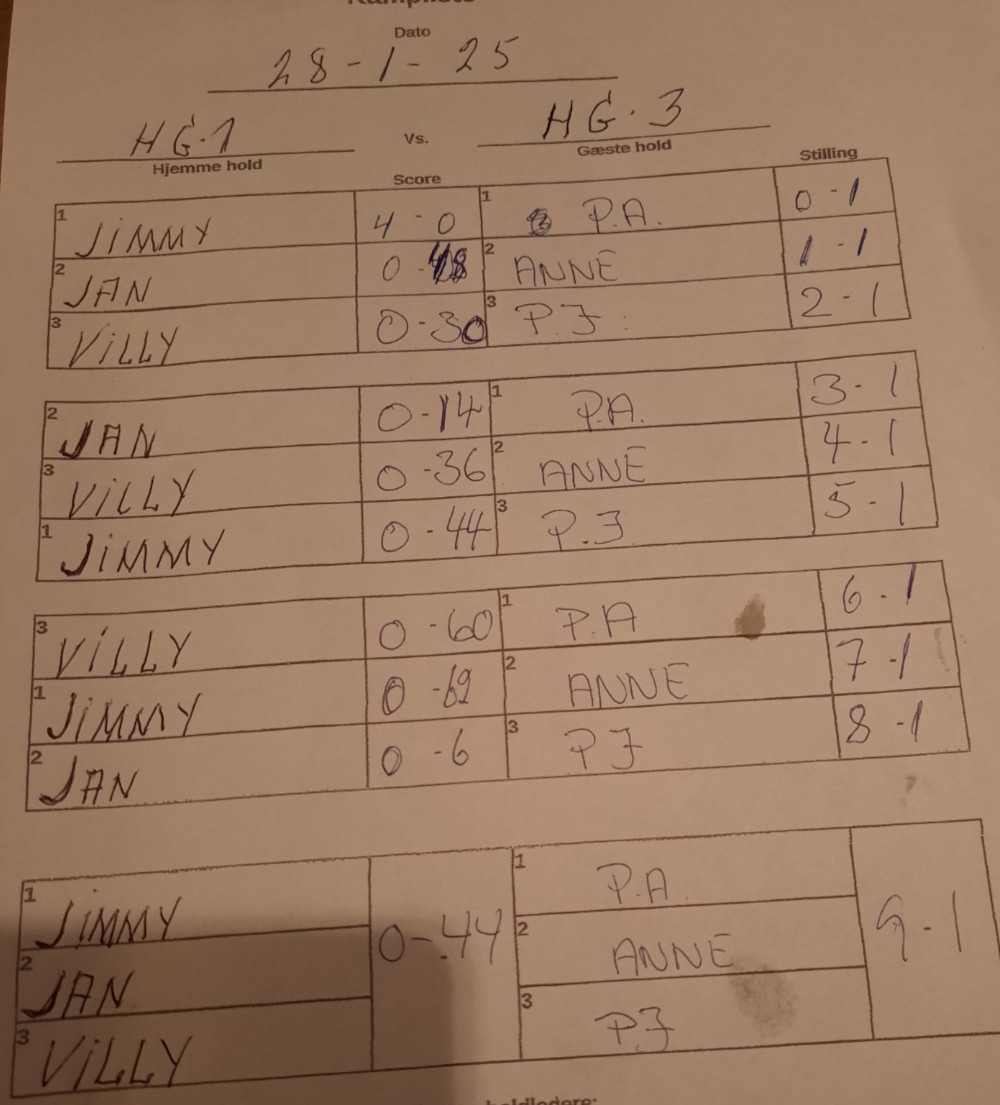 Kampliste
Dato
28-1-25
HG.1 Vs. HG.3
Hjemme hold Gæste hold
Score Stilling
1 JIMMY 4-0 1 P.A. 0-1
2 JAN 0-48 2 ANNE 1-1
3 VILLY 0-30 3 P.J. 2-1
2 JAN 0-14 1 P.A. 3-1
3 VILLY 0-36 2 ANNE 4-1
1 JIMMY 0-44 3 P.J 5-1
3 VILLY 0-60 1 P.A 6-1
1 JIMMY 0-62 2 ANNE 7-1
2 JAN 0-6 3 PJ 8-1
1 JIMMY 0-44 1 P.A. 9-1
2 JAN 2 ANNE
3 VILLY 3 P.J
holdledere: